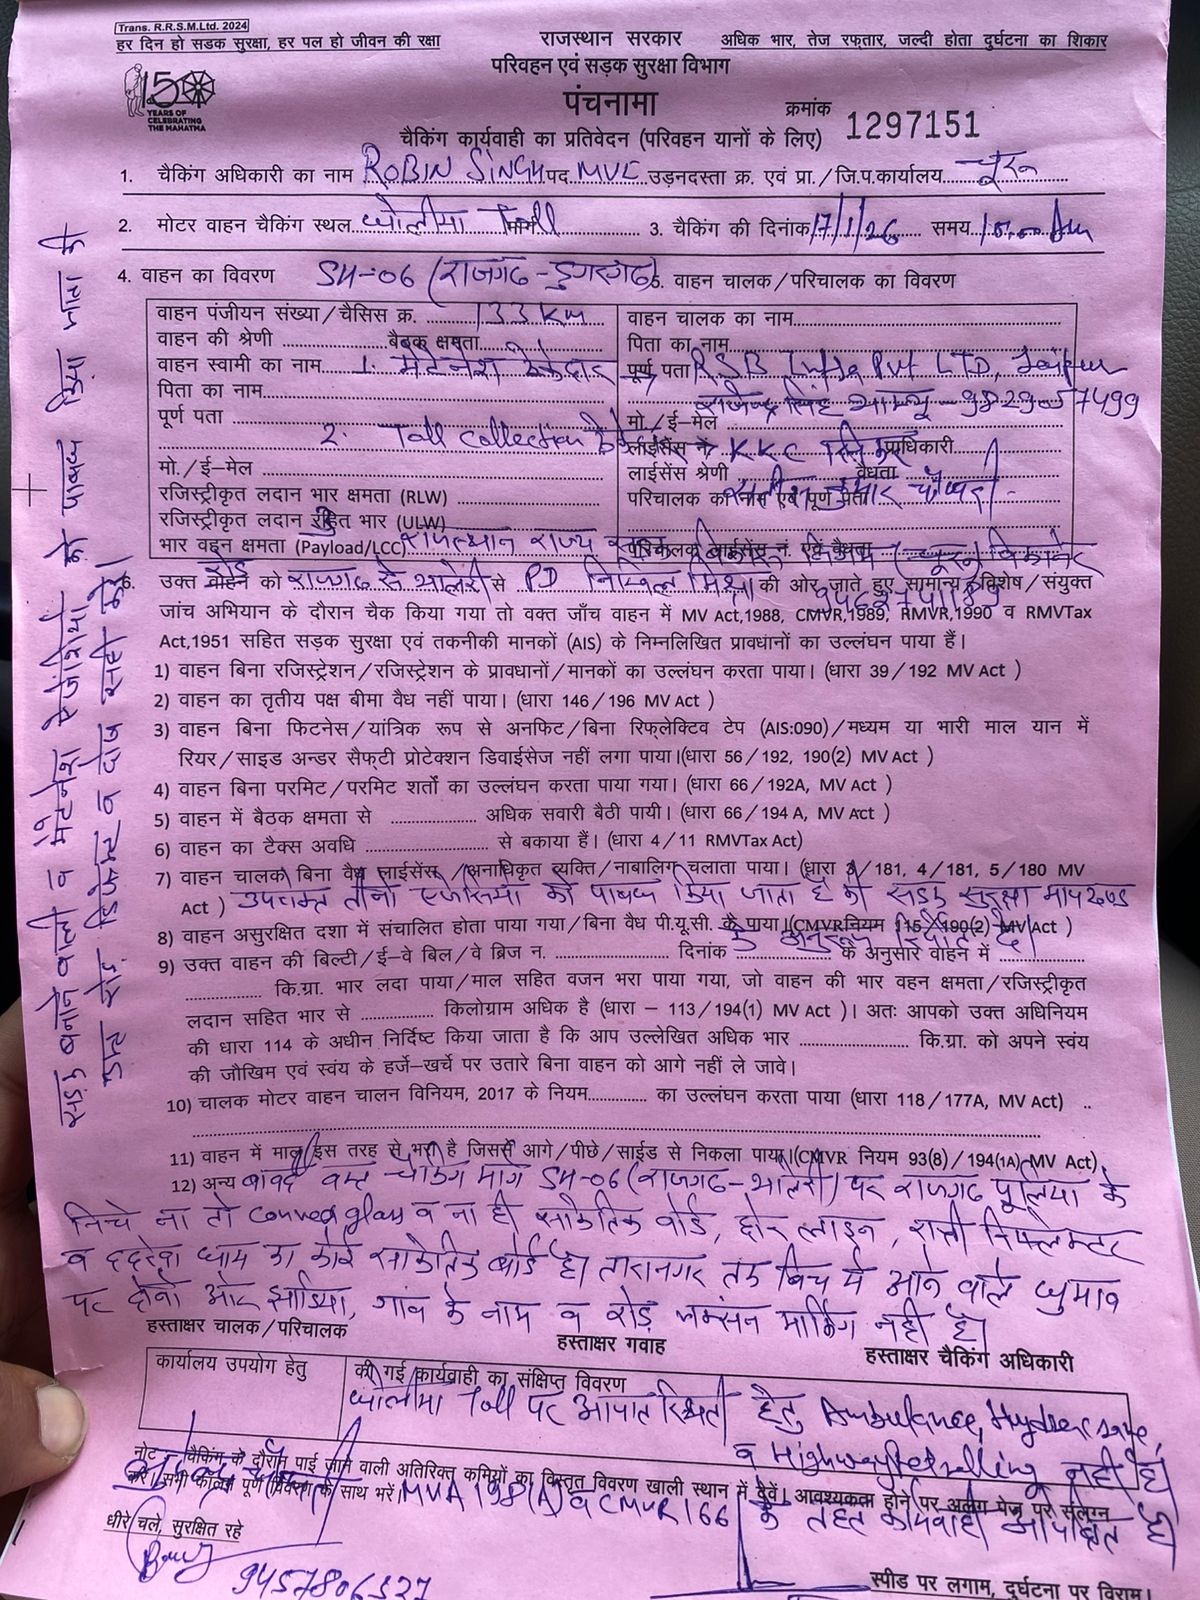 Trans. R.R.S.M.Ltd. 2024
हर दिन हो सडक सुरक्षा, हर पल हो जीवन की रक्षा
राजस्थान सरकार
अधिक भार, तेज रफ्तार, जल्दी होता दुर्घटना का शिकार
परिवहन एवं सड़क सुरक्षा विभाग
150 YEARS OF CELEBRATING THE MAHATMA
पंचनामा
क्रमांक 1297151
चैकिंग कार्यवाही का प्रतिवेदन (परिवहन यानों के लिए)
1. चैकिंग अधिकारी का नाम ROBIN SINGH पद MVI उड़नदस्ता क्र. एवं प्रा./जि.प.कार्यालय चूरू
2. मोटर वाहन चैकिंग स्थल Toll 3. चैकिंग की दिनांक 17/1/26 समय
4. वाहन का विवरण SH-06 (राजगढ- 5. वाहन चालक/परिचालक का विवरण
वाहन पंजीयन संख्या/चैसिस क्र. 133 Km
वाहन चालक का नाम
वाहन की श्रेणी बैठक क्षमता
पिता का नाम
वाहन स्वामी का नाम 1. ठेकेदार
पूर्ण पता RSB Infra Pvt LTD, Jaipur
पिता का नाम
पूर्ण पता
मो./ई-मेल
2. Toll Collection
लाईसेंस नं. KKC प्राधिकारी
मो./ई-मेल
लाईसेंस श्रेणी वैधता
रजिस्ट्रीकृत लदान भार क्षमता (RLW)
परिचालक का नाम एवं पूर्ण पता
रजिस्ट्रीकृत लदान रहित भार (ULW)
भार वहन क्षमता (Payload/LCC) राजस्थान राज्य
परिचालक लाईसेंस नं. एवं वैधता
6. उक्त वाहन को राजगढ से भालेरी से PD की ओर जाते हुए सामान्य/विशेष/संयुक्त
जांच अभियान के दौरान चैक किया गया तो वक्त जाँच वाहन में MV Act,1988, CMVR,1989, RMVR,1990 व RMVTax
Act,1951 सहित सड़क सुरक्षा एवं तकनीकी मानकों (AIS) के निम्नलिखित प्रावधानों का उल्लंघन पाया हैं।
1) वाहन बिना रजिस्ट्रेशन/रजिस्ट्रेशन के प्रावधानों/मानकों का उल्लंघन करता पाया। (धारा 39/192 MV Act )
2) वाहन का तृतीय पक्ष बीमा वैध नहीं पाया। (धारा 146/196 MV Act )
3) वाहन बिना फिटनेस/यांत्रिक रूप से अनफिट/बिना रिफ्लेक्टिव टेप (AIS:090)/मध्यम या भारी माल यान में
रियर/साइड अन्डर सैफ्टी प्रोटेक्शन डिवाईसेज नहीं लगा पाया।(धारा 56/192, 190(2) MV Act )
4) वाहन बिना परमिट/परमिट शर्तो का उल्लंघन करता पाया गया। (धारा 66/192A, MV Act )
5) वाहन में बैठक क्षमता से अधिक सवारी बैठी पायी। (धारा 66/194 A, MV Act )
6) वाहन का टैक्स अवधि से बकाया हैं। (धारा 4/11 RMVTax Act)
7) वाहन चालक बिना वैध लाईसेंस /अनाधिकृत व्यक्ति/नाबालिग चलाता पाया। (धारा 3/181, 4/181, 5/180 MV
Act ) उपरोक्त तीनो को पाबन्द किया जाता है की सडक सुरक्षा मापदण्ड
8) वाहन असुरक्षित दशा में संचालित होता पाया गया/बिना वैध पी.यू.सी. के पाया।(CMVR नियम 115/190(2) MV Act )
के अनुरूप रिपोर्ट दे।
9) उक्त वाहन की बिल्टी/ई-वे बिल/वे ब्रिज न. दिनांक के अनुसार वाहन में
कि.ग्रा. भार लदा पाया/माल सहित वजन भरा पाया गया, जो वाहन की भार वहन क्षमता/रजिस्ट्रीकृत
लदान सहित भार से किलोग्राम अधिक है (धारा – 113/194(1) MV Act )। अतः आपको उक्त अधिनियम
की धारा 114 के अधीन निर्दिष्ट किया जाता है कि आप उल्लेखित अधिक भार कि.ग्रा. को अपने स्वंय
की जौखिम एवं स्वंय के हर्जे-खर्चे पर उतारे बिना वाहन को आगे नहीं ले जावे।
10) चालक मोटर वाहन चालन विनियम, 2017 के नियम का उल्लंघन करता पाया (धारा 118/177A, MV Act)
11) वाहन में माल इस तरह से भरा है जिससे आगे/पीछे/साईड से निकला पाया।(CMVR नियम 93(8)/194(1A) MV Act)
12) अन्य बाबत वक्त चेकिंग मार्ग SH-06 (राजगढ-भालेरी) पर राजगढ पूलिया के
निचे ना तो convex glass व ना ही सांकेतिक बोर्ड, लाइन, रात्री रिफ्लेक्टर
व ददरेवा धाम का कोई सांकेतिक बोर्ड है। तारानगर तक बिच मे आने वाले घुमाव
पर दोनो ओर झाडिया, गांव के नाम व रोड़ जक्सन मार्किंग नही है।
हस्ताक्षर चालक/परिचालक
हस्ताक्षर गवाह
हस्ताक्षर चैकिंग अधिकारी
कार्यालय उपयोग हेतु
की गई कार्यवाही का संक्षिप्त विवरण
Toll पर आपात स्थिती हेतु Ambulance,
व Highway Petrolling नही है।
नोट : चैकिंग के दौरान पाई जाने वाली अतिरिक्त कमियों का विस्तृत विवरण खाली स्थान में देवें। आवश्यकता होने पर अलग पेज पर संलग्न
करें। सभी कॉलम पूर्ण विवरण के साथ भरें। MVA 198(A) व CMVR 166 के तहत कार्यवाही अपेक्षित है
धीरे चले, सुरक्षित रहे
9457806327
स्पीड पर लगाम, दुर्घटना पर विराम।
सड़क बनाने वाली व मेटनेश एजेंसियो को पाबन्द किया जाता है